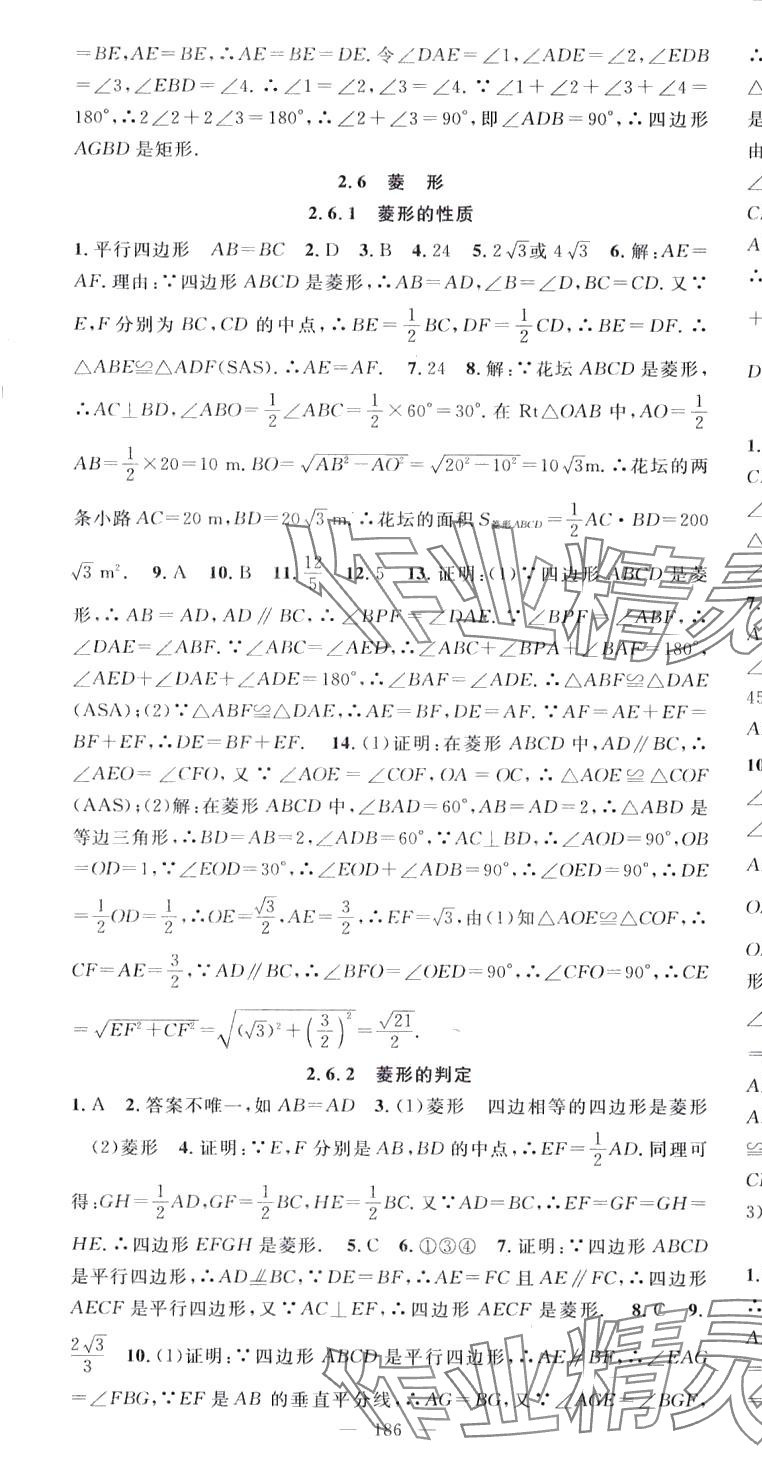 =BE,AE=BE,∴AE=BE=DE.令∠DAE=∠1,∠ADE=∠2,∠EDB
=∠3,∠EBD=∠4.∴∠1=∠2,∴∠3=∠4.∵∠1+∠2+∠3+∠4=
180°,∴2∠2+2∠3=180°,∴∠2+∠3=90°,即∠ADB=90°,∴四边形
AGBD是矩形.
2.6 菱 形
2.6.1 菱形的性质
1.平行四边形 AB=BC 2.D 3.B 4.24 5.2√3或4√3 6.解:AE=
AF.理由:∵四边形ABCD是菱形,∴AB=AD,∠B=∠D,BC=CD.又∵
E,F分别为BC,CD的中点,∴BE=1/2BC,DF=1/2CD,∴BE=DF.∴
△ABE≌△ADF(SAS).∴AE=AF. 7.24 8.解:∵花坛ABCD是菱形,
∴AC⊥BD,∠ABO=1/2∠ABC=1/2×60°=30°.在Rt△OAB中,AO=1/2
AB=1/2×20=10 m.BO=√(AB²-AO²)=√(20²-10²)=10√3m.∴花坛的两
条小路AC=20 m,BD=20√3 m.∴花坛的面积S菱形ABCD=1/2AC·BD=200
√3 m². 9.A 10.B 11.12/5 12.5 13.证明:(1)∵四边形ABCD是菱
形,∴AB=AD,AD∥BC,∴∠BPF=∠DAE.∵∠BPF=∠ABF,∴
∠DAE=∠ABF.∵∠ABC=∠AED,∴∠ABC+∠BPA+∠BAF=180°,
∠AED+∠DAE+∠ADE=180°,∴∠BAF=∠ADE.∴△ABF≌△DAE
(ASA);(2)∵△ABF≌△DAE,∴AE=BF,DE=AF.∵AF=AE+EF=
BF+EF,∴DE=BF+EF. 14.(1)证明:在菱形ABCD中,AD∥BC,∴
∠AEO=∠CFO,又∵∠AOE=∠COF,OA=OC,∴△AOE≌△COF
(AAS);(2)解:在菱形ABCD中,∠BAD=60°,AB=AD=2,∴△ABD是
等边三角形,∴BD=AB=2,∠ADB=60°,∵AC⊥BD,∴∠AOD=90°,OB
=OD=1,∵∠EOD=30°,∴∠EOD+∠ADB=90°,∴∠OED=90°,∴DE
=1/2OD=1/2,∴OE=√3/2,AE=3/2,∴EF=√3,由(1)知△AOE≌△COF,∴
CF=AE=3/2,∵AD∥BC,∴∠BFO=∠OED=90°,∴∠CFO=90°,∴CE
=√(EF²+CF²)=√((√3)²+(3/2)²)=√21/2.
2.6.2 菱形的判定
1.A 2.答案不唯一,如AB=AD 3.(1)菱形 四边相等的四边形是菱形
(2)菱形 4.证明:∵E,F分别是AB,BD的中点,∴EF=1/2AD.同理可
得:GH=1/2AD,GF=1/2BC,HE=1/2BC.又∵AD=BC,∴EF=GF=GH=
HE.∴四边形EFGH是菱形. 5.C 6.①③④ 7.证明:∵四边形ABCD
是平行四边形,∴AD∥BC,∵DE=BF,∴AE=FC且AE∥FC,∴四边形
AECF是平行四边形,又∵AC⊥EF,∴四边形AECF是菱形. 8.C 9.
2√3/3 10.(1)证明:∵四边形ABCD是平行四边形,∴AE∥BF,∴∠EAG
=∠FBG,∵EF是AB的垂直平分线,∴AG=BG,又∵∠AGE=∠BGF,
— 186 —
作业精灵
作业精灵